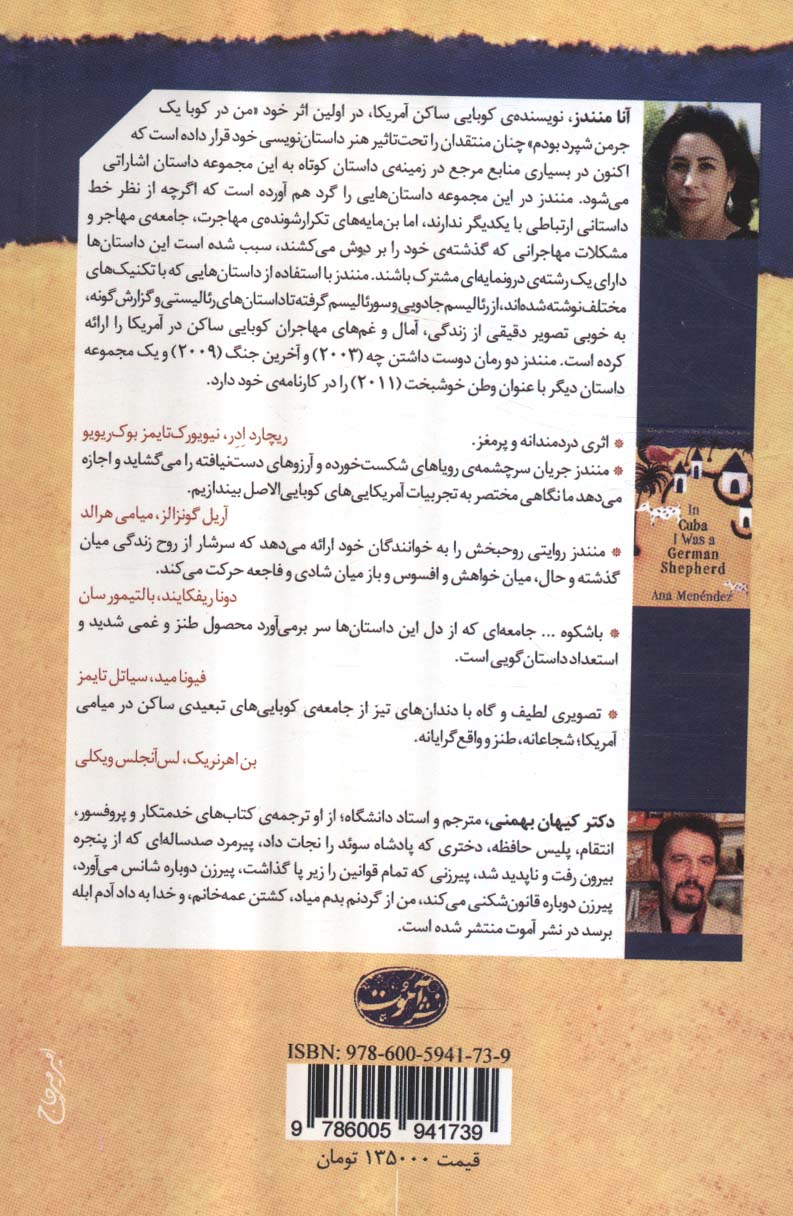 آنا منندز، نویسنده‌ی کوبایی ساکن آمریکا، در اولین اثر خود «من در کوبا یک
جرمن شپرد بودم» چنان منتقدان را تحت‌تاثیر هنر داستان‌نویسی خود قرار داده است که
اکنون در بسیاری منابع مرجع در زمینه‌ی داستان کوتاه به این مجموعه داستان اشاراتی
می‌شود. منندز در این مجموعه داستان‌هایی را گرد هم آورده است که اگرچه از نظر خط
داستانی ارتباطی با یکدیگر ندارند، اما بن‌مایه‌های تکرارشونده‌ی مهاجرت، جامعه‌ی مهاجر و
مشکلات مهاجرانی که گذشته‌ی خود را بر دوش می‌کشند، سبب شده است این داستان‌ها
دارای یک رشته‌ی درونمایه‌ای مشترک باشند. منندز با استفاده از داستان‌هایی که با تکنیک‌های
مختلف نوشته شده‌اند، از رئالیسم جادویی و سورئالیسم گرفته تا داستان‌های رئالیستی و گزارش‌گونه،
به خوبی تصویر دقیقی از زندگی، آمال و غم‌های مهاجران کوبایی ساکن در آمریکا را ارائه
کرده است. منندز دو رمان دوست داشتن چه (۲۰۰۳) و آخرین جنگ (۲۰۰۹) و یک مجموعه
داستان دیگر با عنوان وطن خوشبخت (۲۰۱۱) را در کارنامه‌ی خود دارد.
* اثری دردمندانه و پرمغز. ریچارد اِدِر، نیویورک‌تایمز بوک‌ریویو
* منندز جریان سرچشمه‌ی رویاهای شکست‌خورده و آرزوهای دست‌نیافته را می‌گشاید و اجازه
می‌دهد ما نگاهی مختصر به تجربیات آمریکایی‌های کوبایی‌الاصل بیندازیم.
آریل گونزالز، میامی هرالد
* منندز روایتی روحبخش را به خوانندگان خود ارائه می‌دهد که سرشار از روح زندگی میان
گذشته و حال، میان خواهش و افسوس و باز میان شادی و فاجعه حرکت می‌کند.
دونا ریفکایند، بالتیمور سان
* باشکوه ... جامعه‌ای که از دل این داستان‌ها سر برمی‌آورد محصول طنز و غمی شدید و
استعداد داستان‌گویی است.
فیونا مید، سیاتل تایمز
* تصویری لطیف و گاه با دندان‌های تیز از جامعه‌ی کوبایی‌های تبعیدی ساکن در میامی
آمریکا؛ شجاعانه، طنز و واقع‌گرایانه.
بن اهرنریک، لس‌آنجلس ویکلی
In
Cuba
I Was a
German
Shepherd
Ana Menéndez
دکتر کیهان بهمنی، مترجم و استاد دانشگاه؛ از او ترجمه‌ی کتاب‌های خدمتکار و پروفسور،
انتقام، پلیس حافظه، دختری که پادشاه سوئد را نجات داد، پیرمرد صدساله‌ای که از پنجره
بیرون رفت و ناپدید شد، پیرزنی که تمام قوانین را زیر پا گذاشت، پیرزن دوباره شانس می‌آورد،
پیرزن دوباره قانون‌شکنی می‌کند، من از گردنم بدم میاد، کشتن عمه‌خانم، و خدا به داد آدم ابله
برسد در نشر آموت منتشر شده است.
نشر آموت
ISBN: 978-600-5941-73-9
9 786005 941739
قیمت ۱۳۵۰۰۰ تومان
امیر میرحاج